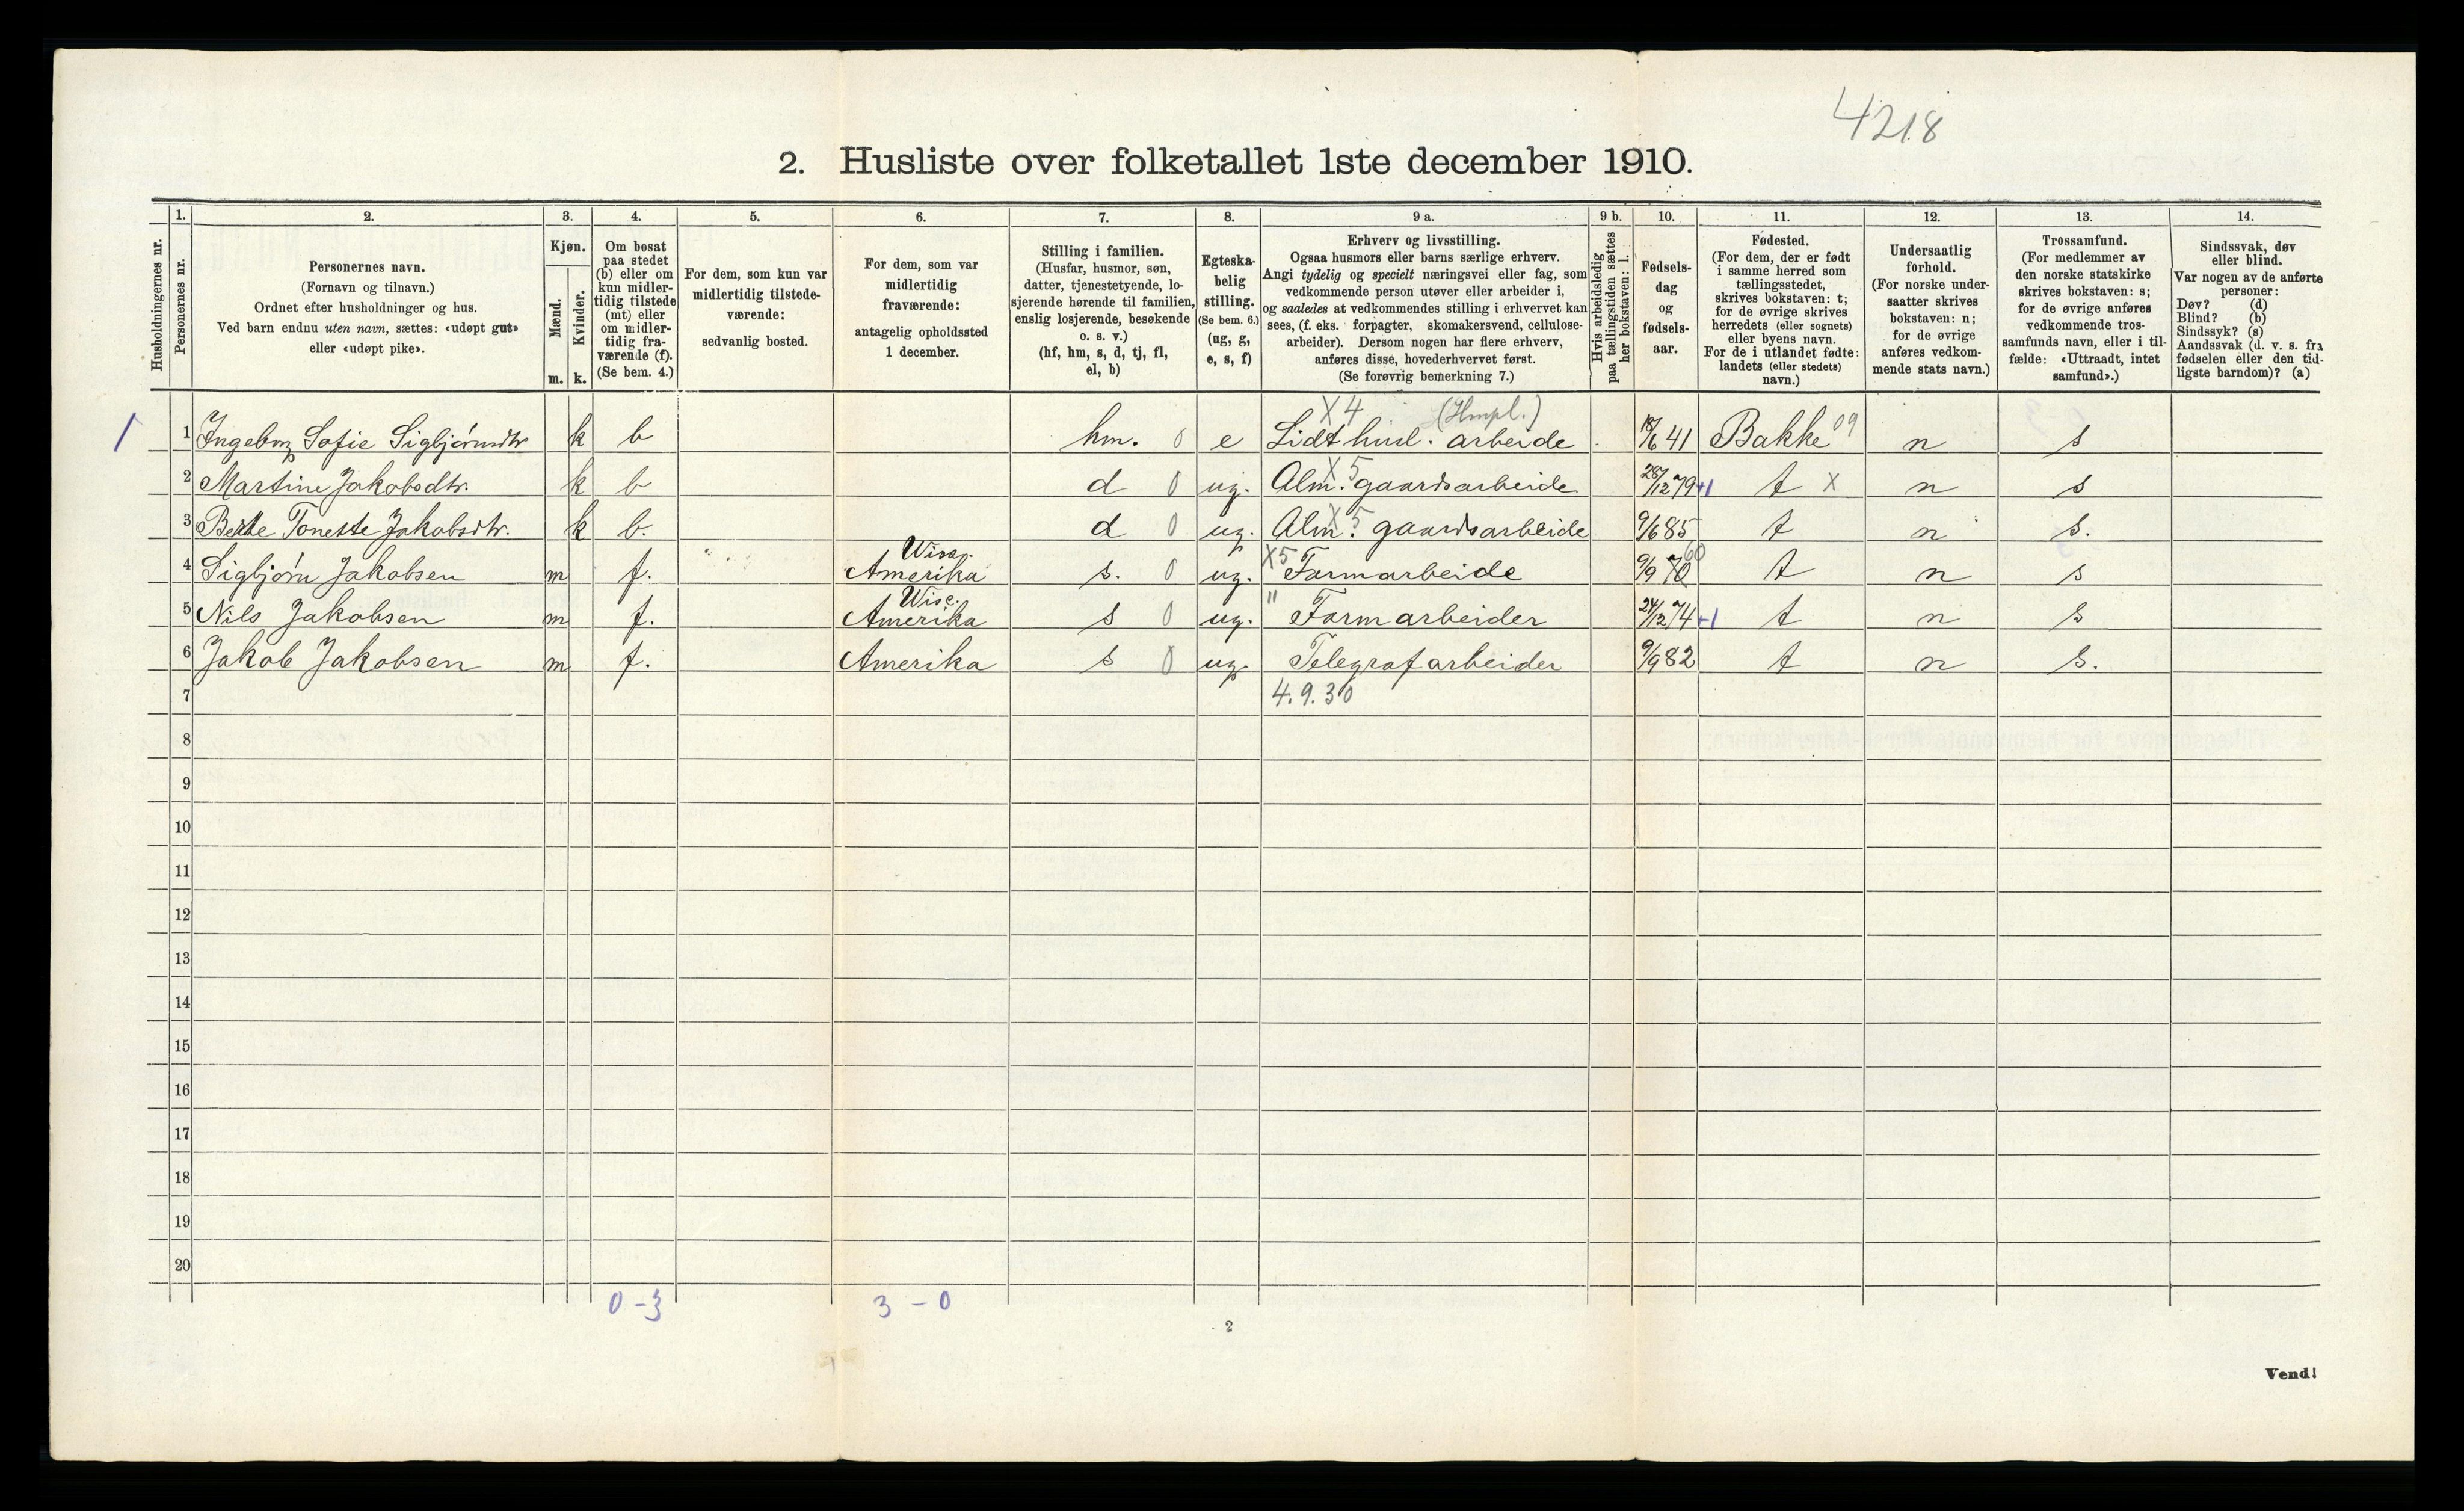 4218
2. Husliste over folketallet 1ste december 1910.
Husholdningernes nr.
1. Personernes nr.
2. Personernes navn.
(Fornavn og tilnavn.)
Ordnet efter husholdninger og hus.
Ved barn endnu uten navn, sættes: «udøpt gut»
eller «udøpt pike».
3. Kjøn.
Mænd. m.
Kvinder. k.
4. Om bosat
paa stedet
(b) eller om
kun midler-
tidig tilstede
(mt) eller
om midler-
tidig fra-
værende (f).
(Se bem. 4.)
5. For dem, som kun var
midlertidig tilstede-
værende:
sedvanlig bosted.
6. For dem, som var
midlertidig
fraværende:
antagelig opholdssted
1 december.
7. Stilling i familien.
(Husfar, husmor, søn,
datter, tjenestetyende, lo-
sjerende hørende til familien,
enslig losjerende, besøkende
o. s. v.)
(hf, hm, s, d, tj, fl,
el, b)
8. Egteska-
belig
stilling.
(Se bem. 6.)
(ug, g,
e, s, f)
9 a. Erhverv og livsstilling.
Ogsaa husmors eller barns særlige erhverv.
Angi tydelig og specielt næringsvei eller fag, som
vedkommende person utøver eller arbeider i,
og saaledes at vedkommendes stilling i erhvervet kan
sees, (f. eks. forpagter, skomakersvend, cellulose-
arbeider). Dersom nogen har flere erhverv,
anføres disse, hovederhvervet først.
(Se forøvrig bemerkning 7.)
9 b. Hvis arbeidsledig
paa tællingstiden sættes
her bokstaven: l.
10. Fødsels-
dag
og
fødsels-
aar.
11. Fødested.
(For dem, der er født
i samme herred som
tællingsstedet,
skrives bokstaven: t;
for de øvrige skrives
herredets (eller sognets)
eller byens navn.
For de i utlandet fødte:
landets (eller stedets)
navn.)
12. Undersaatlig
forhold.
(For norske under-
saatter skrives
bokstaven: n;
for de øvrige
anføres vedkom-
mende stats navn.)
13. Trossamfund.
(For medlemmer av
den norske statskirke
skrives bokstaven: s;
for de øvrige anføres
vedkommende tros-
samfunds navn, eller i til-
fælde: «Uttraadt, intet
samfund».)
14. Sindssvak, døv
eller blind.
Var nogen av de anførte
personer:
Døv? (d)
Blind? (b)
Sindssyk? (s)
Aandssvak (d. v. s. fra
fødselen eller den tid-
ligste barndom)? (a)
X4 (Hmpl.)
1 1 Ingeborg Sofie Sigbjørnsdtr k b hm. 0 e Lidt husl. arbeide 18/6 41 Bakke 09 n s
2 Martine Jakobsdtr. k b d 0 ug. Alm. X5 gaardsarbeide 28/12 79 +1 t X n s
3 Berthe Tonette Jakobsdtr. k b. d 0 ug. Alm. X5 gaardsarbeide 9/6 85 t n s.
Wisc. 60
4 Sigbjørn Jakobsen m f. Amerika s. 0 ug. X5 Farmarbeide 9/9 70 t n s
Wisc.
5 Nils Jakobsen m f. Amerika s 0 ug. " Farmarbeider 24/12 74 +1 t n s
6 Jakob Jakobsen m f. Amerika s 0 ug. Telegrafarbeider 9/9 82 t n s.
7 4.9.30
8
9
10
11
12
13
14
15
16
17
18
19
20
0-3 3-0
2
Vend!